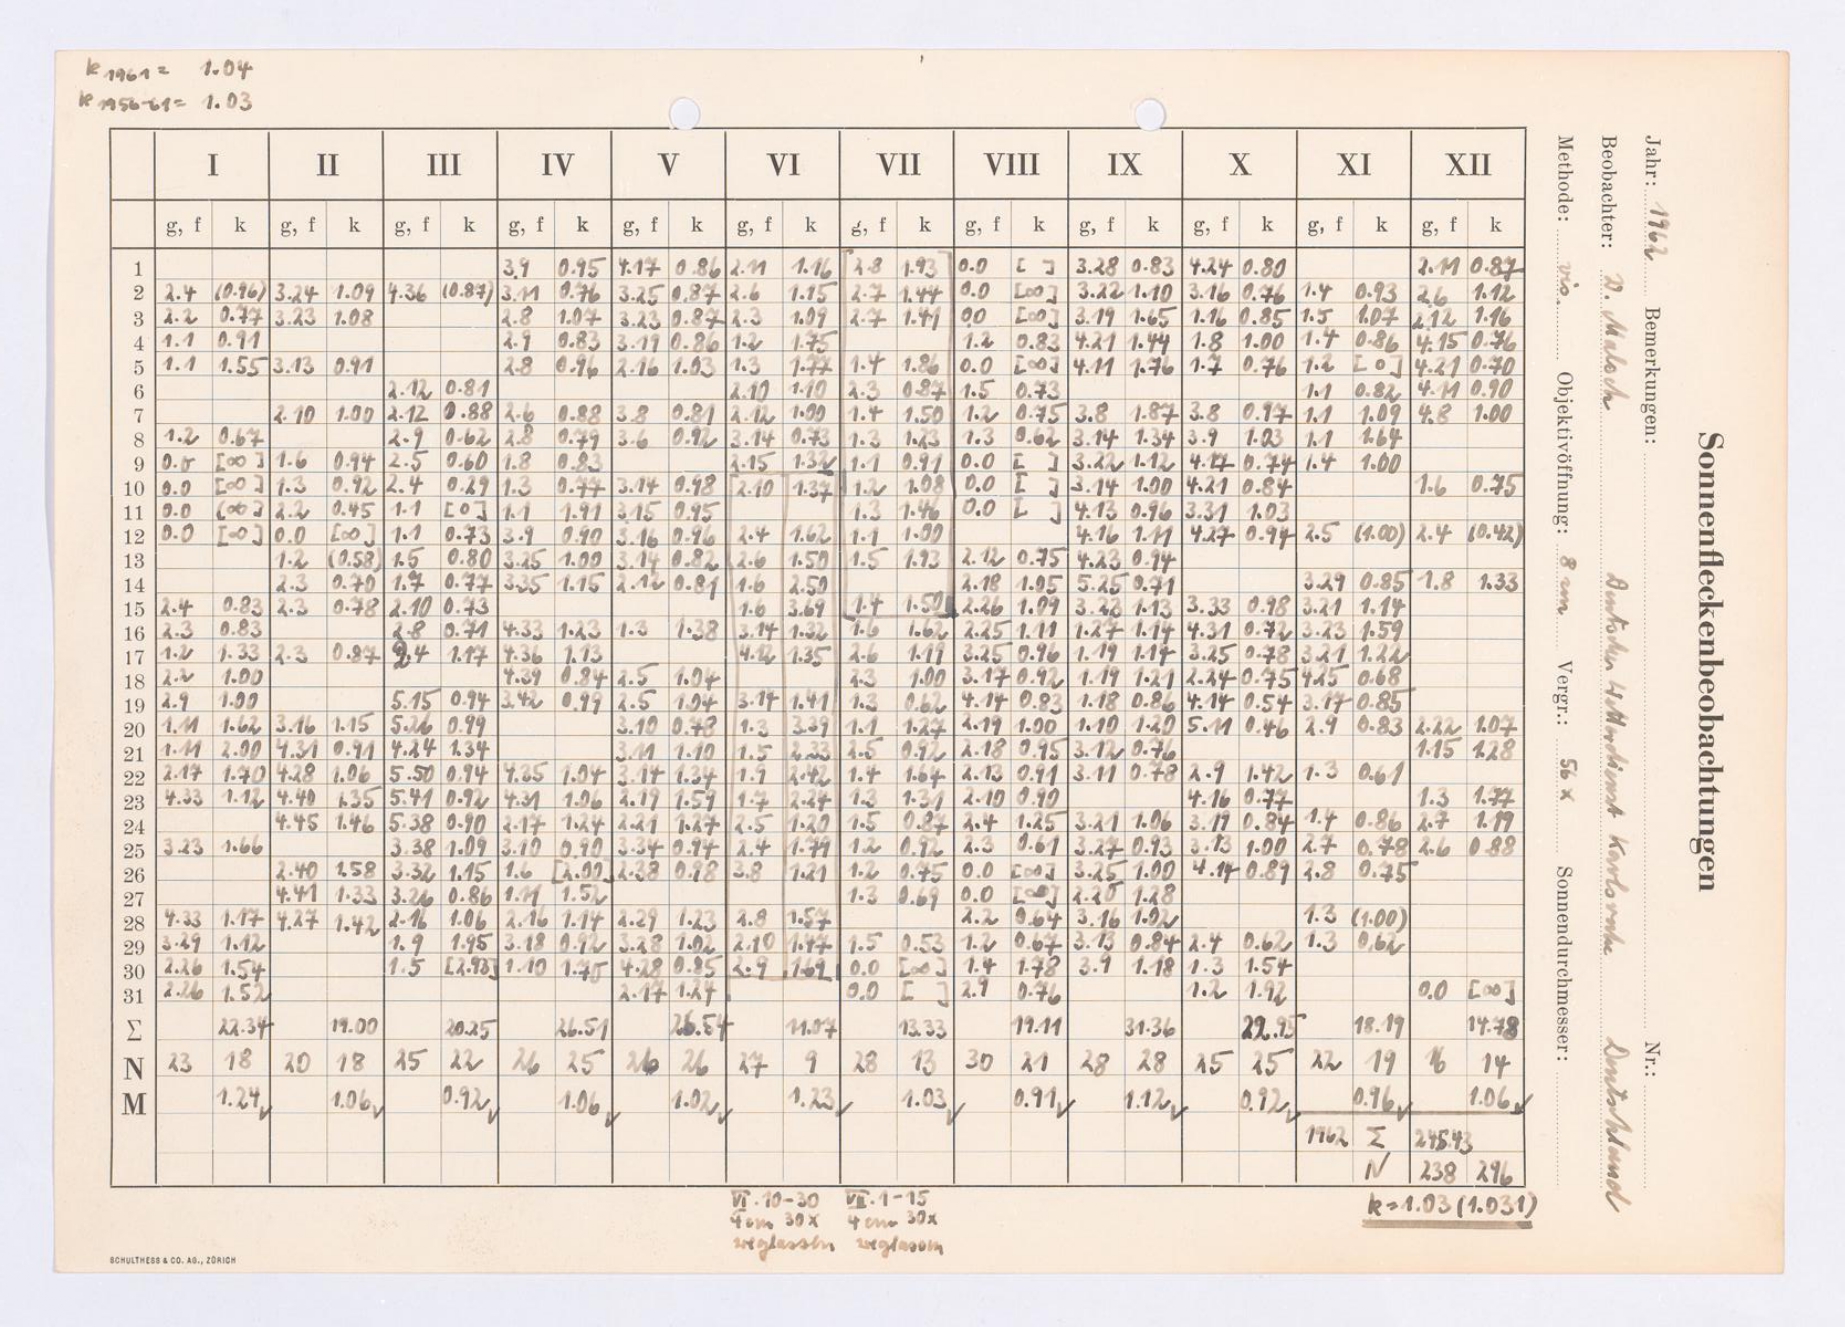 k 1961 = 1.04
k 1956-61 = 1.03
I II III IV V VI VII VIII IX X XI XII
g, f k g, f k g, f k g, f k g, f k g, f k g, f k g, f k g, f k g, f k g, f k g, f k
1 3.9 0.95 4.17 0.86 2.11 1.16 2.8 1.93 0.0 [ ] 3.28 0.83 4.24 0.80 2.11 0.87
2 2.4 (0.96) 3.24 1.09 4.36 (0.87) 3.11 0.76 3.25 0.87 2.6 1.15 2.7 1.44 0.0 [∞] 3.22 1.10 3.16 0.76 1.4 0.93 2.6 1.12
3 2.2 0.77 3.23 1.08 2.8 1.07 3.23 0.87 2.3 1.09 2.7 1.41 0.0 [∞] 3.19 1.65 1.16 0.85 1.5 1.07 2.12 1.16
4 1.1 0.91 2.9 0.83 3.19 0.86 1.2 1.75 1.2 0.83 4.21 1.44 1.8 1.00 1.4 0.86 4.15 0.76
5 1.1 1.55 3.13 0.91 2.8 0.96 2.16 1.03 1.3 1.77 1.4 1.86 0.0 [∞] 4.11 1.76 1.7 0.76 1.2 [0] 4.21 0.70
6 2.12 0.81 2.10 1.10 2.3 0.87 1.5 0.73 1.1 0.82 4.11 0.90
7 2.10 1.00 2.12 0.88 2.6 0.88 3.8 0.81 2.12 1.00 1.4 1.50 1.2 0.75 3.8 1.87 3.8 0.97 1.1 1.09 4.8 1.00
8 1.2 0.67 2.9 0.62 2.8 0.79 3.6 0.92 3.14 0.73 1.3 1.23 1.3 0.62 3.14 1.34 3.9 1.03 1.1 1.64
9 0.0 [∞] 1.6 0.94 2.5 0.60 1.8 0.83 2.15 1.32 1.1 0.91 0.0 [ ] 3.22 1.12 4.17 0.74 1.4 1.00
10 0.0 [∞] 1.3 0.92 2.4 0.29 1.3 0.77 3.14 0.98 2.10 1.37 1.2 1.08 0.0 [ ] 3.14 1.00 4.21 0.84 1.6 0.75
11 0.0 [∞] 2.2 0.45 1.1 [0] 1.1 1.91 3.15 0.95 1.3 1.46 0.0 [ ] 4.13 0.96 3.31 1.03
12 0.0 [∞] 0.0 [∞] 1.1 0.73 3.9 0.90 3.16 0.96 2.4 1.62 1.1 1.00 4.16 1.11 4.27 0.94 2.5 (1.00) 2.4 (0.42)
13 1.2 (0.58) 1.5 0.80 3.25 1.00 3.14 0.82 2.6 1.50 1.5 1.93 2.12 0.75 4.23 0.94
14 2.3 0.70 1.7 0.77 3.35 1.15 2.12 0.81 1.6 2.50 2.18 1.05 5.25 0.71 3.29 0.85 1.8 1.33
15 2.4 0.83 2.3 0.78 2.10 0.73 1.6 3.69 1.4 1.50 2.26 1.09 3.23 1.13 3.33 0.98 3.21 1.14
16 2.3 0.83 2.8 0.71 4.33 1.23 1.3 1.38 3.14 1.32 1.6 1.62 2.25 1.11 1.27 1.14 4.31 0.72 3.23 1.59
17 1.2 1.33 2.3 0.87 2.4 1.17 4.36 1.13 4.12 1.35 2.6 1.19 3.25 0.96 1.19 1.14 3.25 0.78 3.21 1.22
18 2.2 1.00 4.39 0.84 2.5 1.04 2.3 1.00 3.17 0.92 1.19 1.21 2.24 0.75 4.25 0.68
19 2.9 1.00 5.15 0.94 3.42 0.99 2.5 1.04 3.14 1.41 1.3 0.62 4.14 0.83 1.18 0.86 4.14 0.54 3.17 0.85
20 1.11 1.62 3.16 1.15 5.26 0.99 3.10 0.78 1.3 3.39 1.1 1.27 2.19 1.00 1.10 1.20 5.11 0.46 2.9 0.83 2.22 1.07
21 1.11 2.00 4.31 0.91 4.24 1.34 3.11 1.10 1.5 2.33 2.5 0.92 2.18 0.95 3.12 0.76 1.15 1.28
22 2.17 1.70 4.28 1.06 5.50 0.94 4.25 1.04 3.14 1.34 1.9 2.42 1.4 1.64 2.13 0.91 3.11 0.78 2.9 1.42 1.3 0.61
23 4.33 1.12 4.40 1.35 5.41 0.92 4.31 1.06 2.19 1.59 1.7 2.24 1.3 1.31 2.10 0.90 4.16 0.77 1.3 1.77
24 4.45 1.46 5.38 0.90 2.17 1.24 2.21 1.27 2.5 1.20 1.5 0.87 2.4 1.25 3.21 1.06 3.19 0.84 1.4 0.86 2.7 1.19
25 3.23 1.66 3.38 1.09 3.10 0.90 3.34 0.94 2.4 1.79 1.2 0.92 2.3 0.61 3.27 0.93 3.13 1.00 2.7 0.78 2.6 0.88
26 2.40 1.58 3.32 1.15 1.6 [2.00] 2.38 0.98 3.8 1.21 1.2 0.75 0.0 [∞] 3.25 1.00 4.14 0.89 2.8 0.75
27 4.41 1.33 3.26 0.86 1.11 1.52 1.3 0.69 0.0 [∞] 2.20 1.28
28 4.33 1.17 4.27 1.42 2.16 1.06 2.16 1.14 2.29 1.23 2.8 1.57 2.2 0.64 3.16 1.02 1.3 (1.00)
29 3.29 1.12 1.9 1.95 3.18 0.92 3.28 1.02 2.10 1.47 1.5 0.53 1.2 0.67 3.13 0.84 2.4 0.62 1.3 0.62
30 2.26 1.54 1.5 [2.93] 1.10 1.75 4.28 0.85 2.9 1.69 0.0 [∞] 1.4 1.78 3.9 1.18 1.3 1.54
31 2.26 1.52 2.17 1.24 0.0 [ ] 2.9 0.76 1.2 1.92 0.0 [∞]
Σ 22.34 19.00 20.25 26.51 26.54 11.07 13.33 19.11 31.36 22.95 18.19 14.78
N 23 18 20 18 25 22 26 25 26 26 27 9 28 13 30 21 28 28 25 25 22 19 16 14
M 1.24 1.06 0.92 1.06 1.02 1.23 1.03 0.91 1.12 0.92 0.96 1.06
1962 Σ 245.43
N 238 296
VI. 10-30 VII. 1-15
4 cm 30x 4 cm 30x
weglassen weglassen
k = 1.03 (1.031)
SCHULTHESS & CO. AG., ZÜRICH
Sonnenfleckenbeobachtungen
Jahr: 1962 Bemerkungen: Nr.:
Beobachter: D. Malsch Deutscher Wetterdienst Karlsruhe Deutschland
Methode: vis. Objektivöffnung: 8 cm Vergr.: 56 x Sonnendurchmesser: